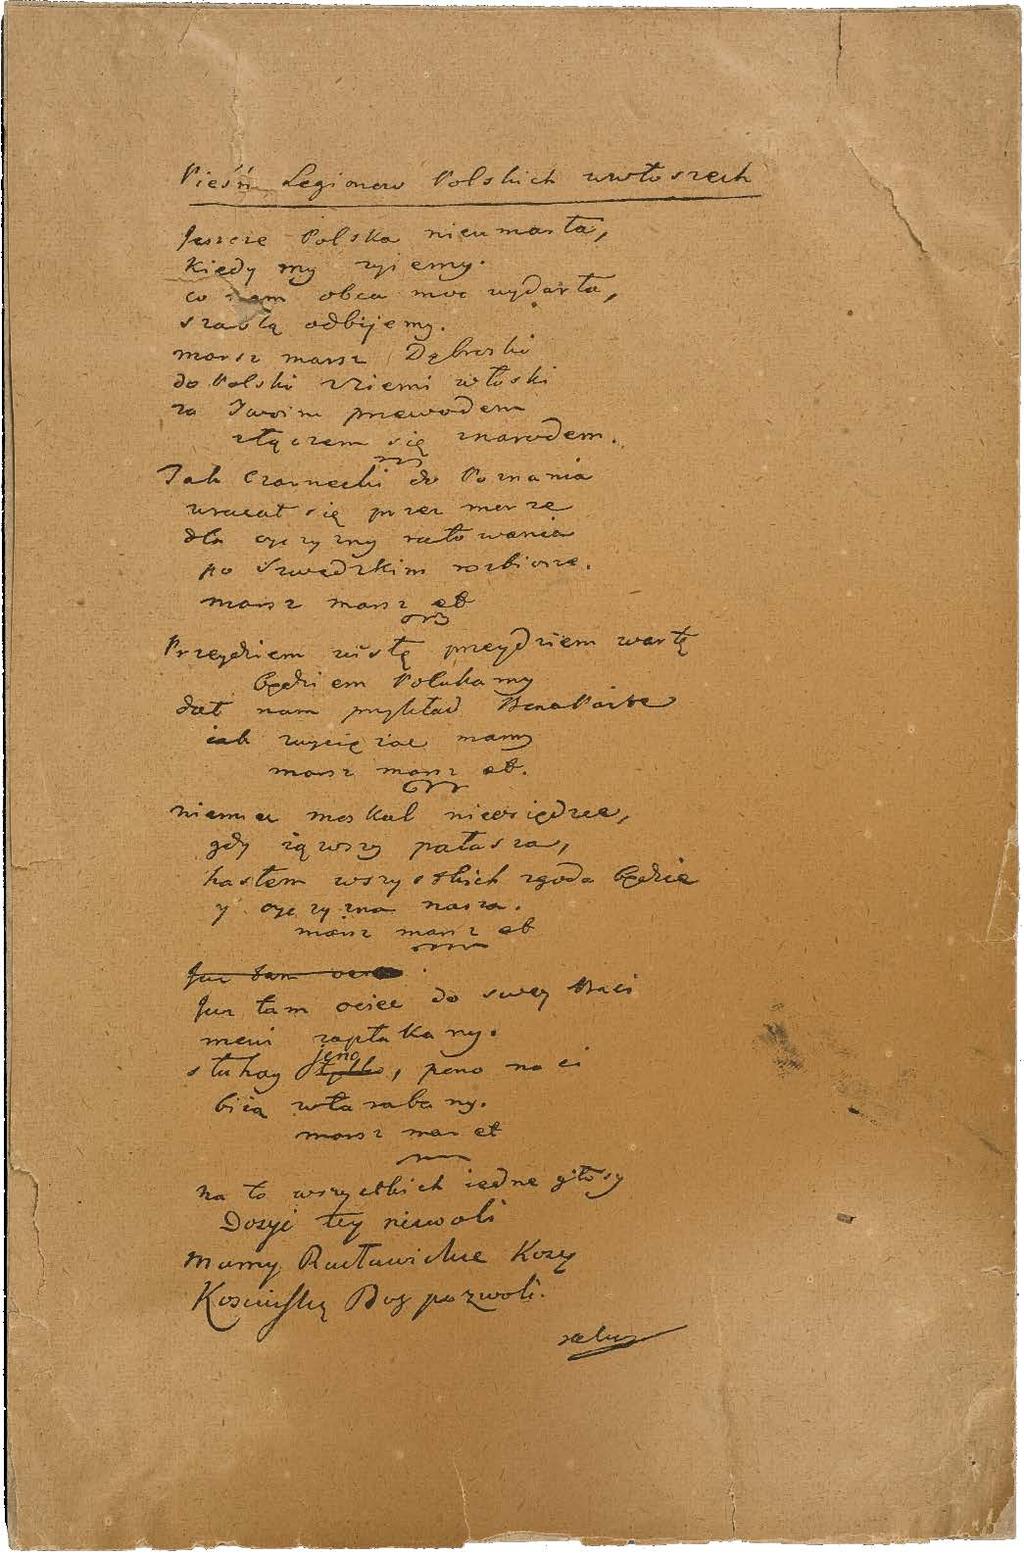 Pieśń Legionow Polskich wewłoszech
Jeszcze Polska nieumarła,
Kiedy my żyiemy.
co nam obca moc wydarła,
szablą odbijemy.
marsz marsz Dąbroski
do Polski zziemi włoski
za Twoim przewodem
złączem się znarodem.
Jak Czarnecki do Poznania
wracał się przez morze
dla oyczyzny ratowania
po Szwedzkim rozbiorze.
marsz marsz et
Przeydziem wisłę przeydziem wartę
będziem Polakamy
dał nam przykład BonaParte
iak zwycięzac mamy
marsz marsz et.
niemiec moskal nieosiędzie,
gdy iąwszy pałasza,
hasłem wszystkich zgoda będzie
y oyczyzna nasza.
marsz marsz et
Juz tam
Juz tam ociec do swey Basi
mowi zapłakany.
słuhay jeno tylko, pono nasi
biią wtarabany.
marsz mar et
na to wszystkich iedne głosy
Dosyć tey niewoli
mamy Racławickie Kosy
Kosciuszkę Bog pozwoli.